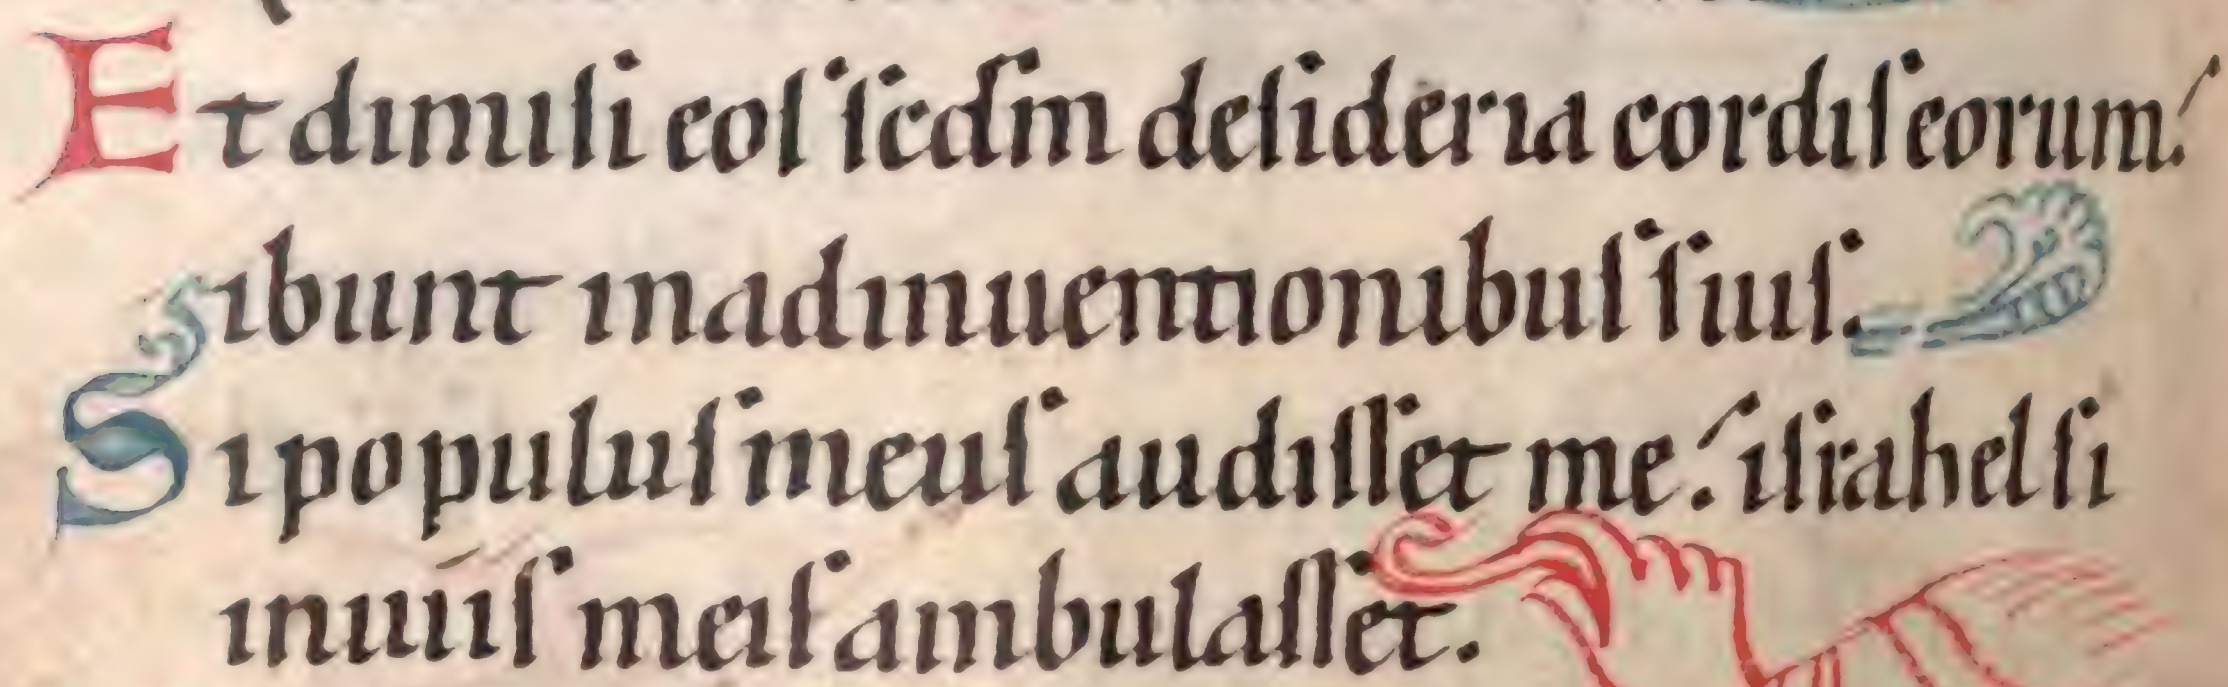 Et dimisi eos scdm desideria cordis eorum:
ibunt in adinventionibus suis.
Si populus meus audisset me: israhel si
in viis meis ambulasset.